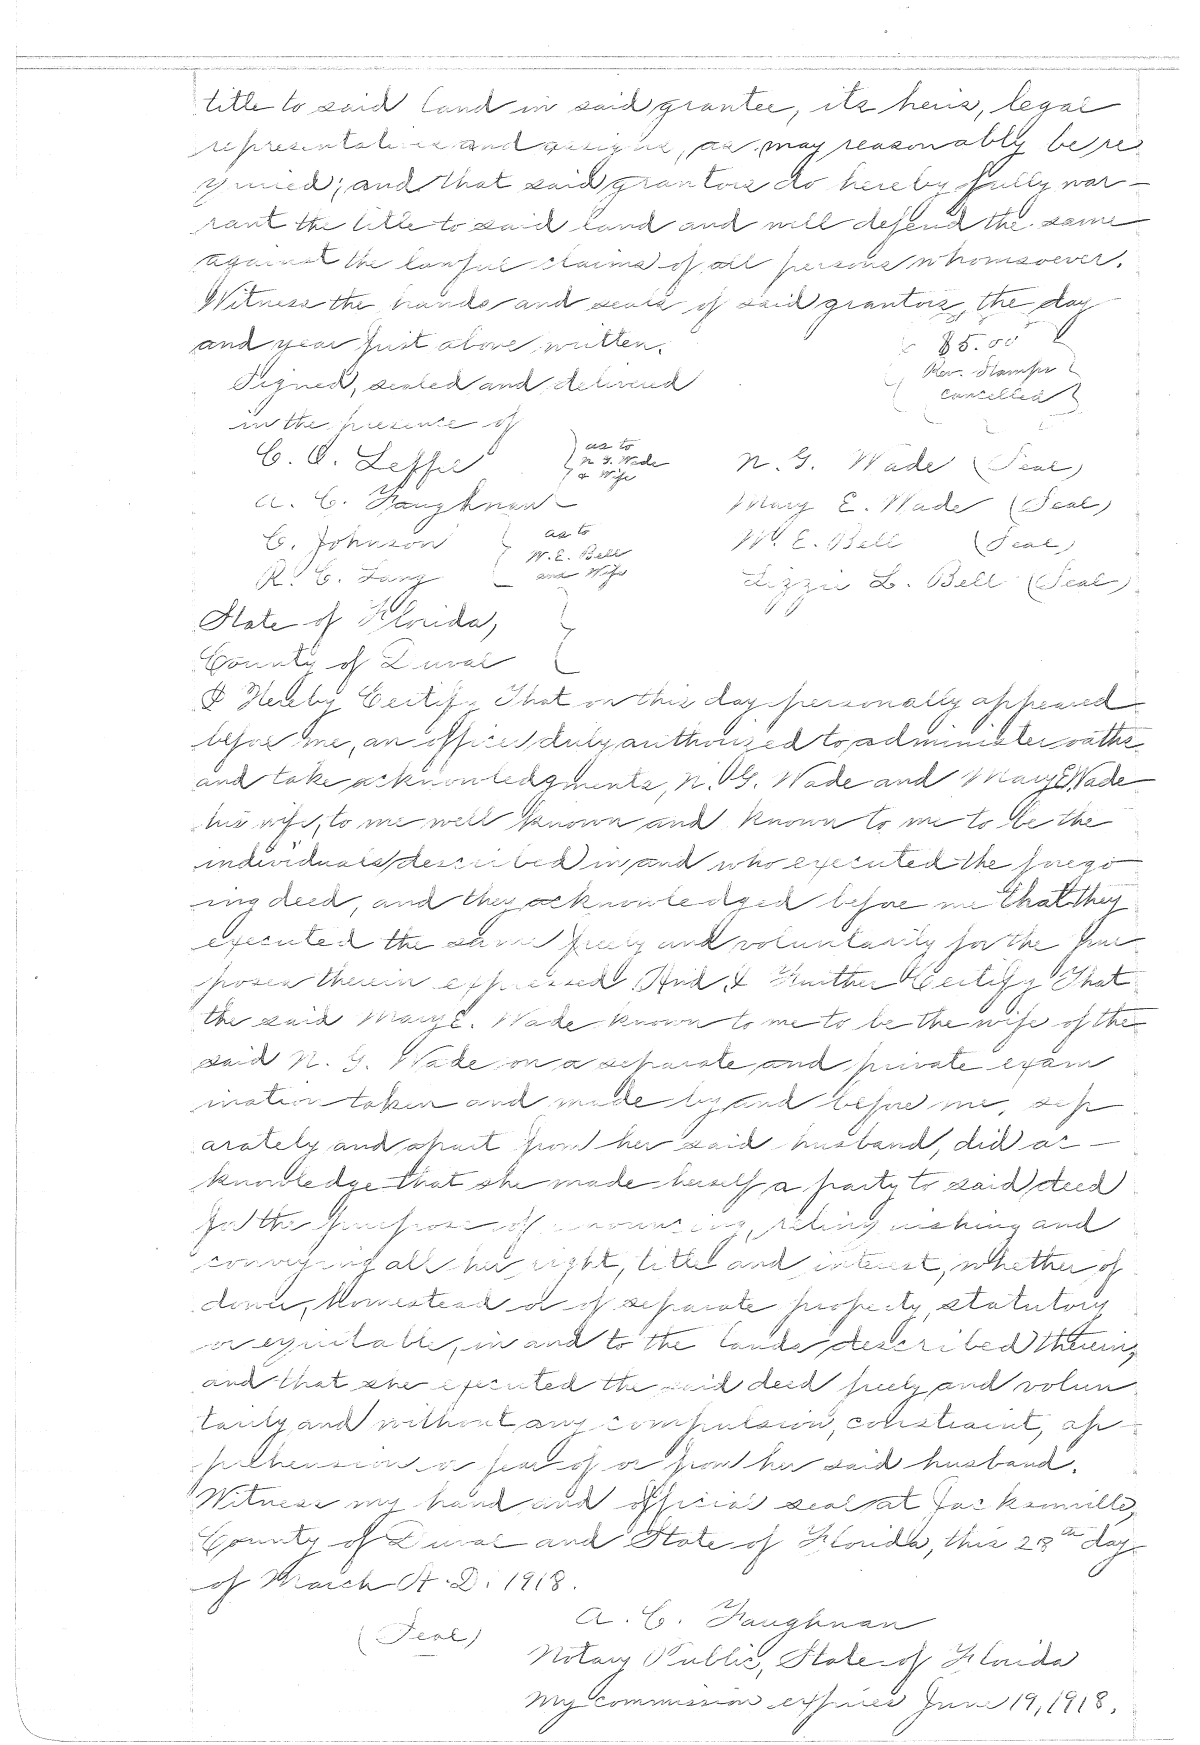 title to said land in said grantee, its heirs, legal
representatives and assigns, as may reasonably be re
quired; and that said grantors do hereby fully war-
rant the title to said land and will defend the same
against the lawful claims of all persons whomsoever.
Witness the hands and seals of said grantors, the day
and year first above written.
$5.00
Rev. Stamps
cancelled
Signed, sealed and delivered
in the presence of
as to
N. G. Wade
& Wife
N. G. Wade (Seal)
A. C. Faughnan
Mary E. Wade (Seal)
C. Johnson
as to
W. E. Bell
and Wife
W. E. Bell (Seal)
R. C.
Lizzie L. Bell (Seal)
State of Florida,
County of Duval
I Hereby Certify That on this day personally appeared
before me, an officer duly authorized to administer oaths
and take acknowledgments, N. G. Wade and Mary E. Wade
his wife, to me well known and known to me to be the
individuals described in and who executed the forego
ing deed, and they acknowledged before me that they
executed the same freely and voluntarily for the pur
poses therein expressed. And I Further Certify That
the said Mary E. Wade known to me to be the wife of the
said N. G. Wade on a separate and private exam
ination taken and made by and before me, sep
arately and apart from her said husband, did ac-
knowledge that she made herself a party to said deed
for the purpose of renouncing, relinquishing and
conveying all her right, title and interest, whether of
dower, homestead or of separate property, statutory
or equitable, in and to the lands described therein,
and that she executed the said deed freely and volun
tarily and without any compulsion, constraint, ap-
prehension or fear of or from her said husband.
Witness my hand and official seal at Jacksonville,
County of Duval and State of Florida, this 28th day
of March A. D. 1918.
A. C. Faughnan
(Seal)
Notary Public, State of Florida
My commission expires June 19, 1918.